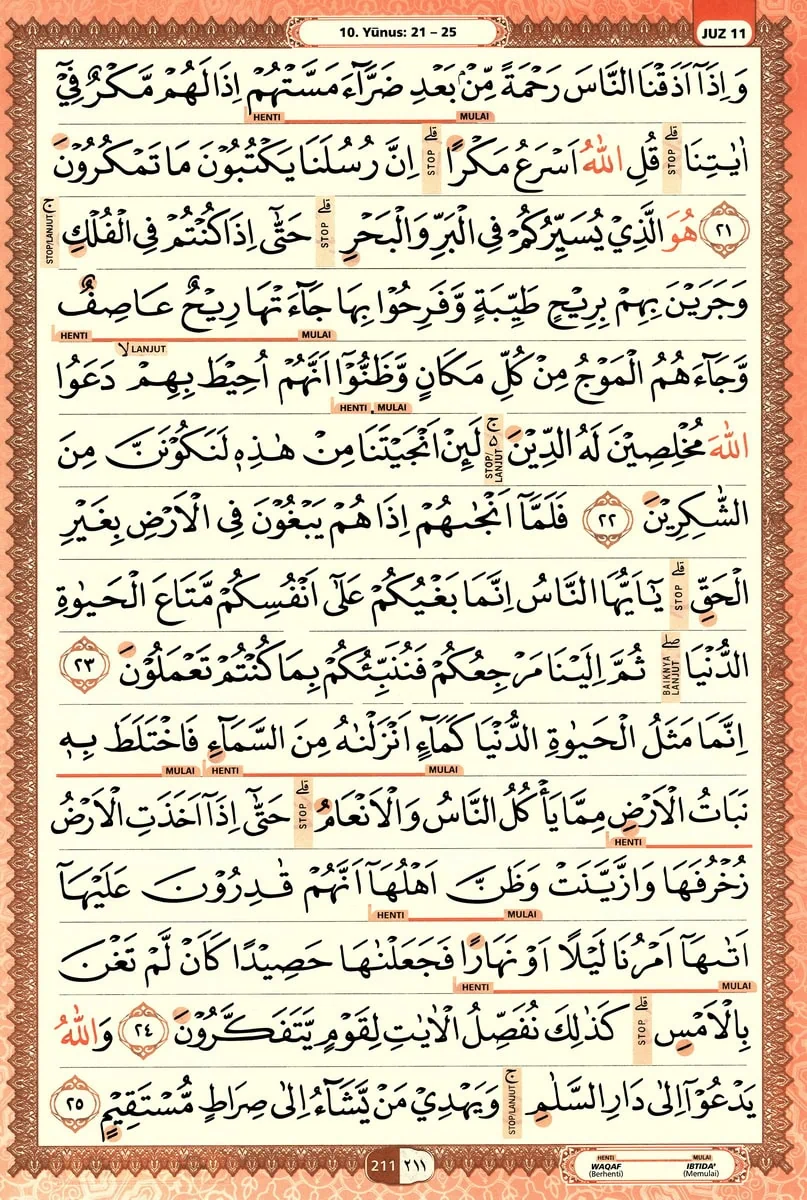 10. Yūnus: 21 – 25
JUZ 11
وَاِذَآ اَذَقْنَا النَّاسَ رَحْمَةً مِّنْۢ بَعْدِ ضَرَّاۤءَ مَسَّتْهُمْ اِذَا لَهُمْ مَّكْرٌ فِيْٓ
HENTI MULAI
اٰيٰتِنَاۗ قُلِ اللّٰهُ اَسْرَعُ مَكْرًاۗ اِنَّ رُسُلَنَا يَكْتُبُوْنَ مَا تَمْكُرُوْنَ
STOP STOP
٢١ هُوَ الَّذِيْ يُسَيِّرُكُمْ فِى الْبَرِّ وَالْبَحْرِۗ حَتّٰٓى اِذَا كُنْتُمْ فِى الْفُلْكِۚ
STOP STOP/LANJUT
وَجَرَيْنَ بِهِمْ بِرِيْحٍ طَيِّبَةٍ وَّفَرِحُوْا بِهَا جَاۤءَتْهَا رِيْحٌ عَاصِفٌ
HENTI MULAI
لا LANJUT
وَّجَاۤءَهُمُ الْمَوْجُ مِنْ كُلِّ مَكَانٍ وَّظَنُّوْٓا اَنَّهُمْ اُحِيْطَ بِهِمْ دَعَوُا
HENTI MULAI
اللّٰهَ مُخْلِصِيْنَ لَهُ الدِّيْنَۚ لَىِٕنْ اَنْجَيْتَنَا مِنْ هٰذِهٖ لَنَكُوْنَنَّ مِنَ
STOP/LANJUT
الشّٰكِرِيْنَ ٢٢ فَلَمَّآ اَنْجٰىهُمْ اِذَا هُمْ يَبْغُوْنَ فِى الْاَرْضِ بِغَيْرِ
الْحَقِّۗ يٰٓاَيُّهَا النَّاسُ اِنَّمَا بَغْيُكُمْ عَلٰٓى اَنْفُسِكُمْ مَّتَاعَ الْحَيٰوةِ
STOP
الدُّنْيَاۖ ثُمَّ اِلَيْنَا مَرْجِعُكُمْ فَنُنَبِّئُكُمْ بِمَا كُنْتُمْ تَعْمَلُوْنَ ٢٣
BAIKNYA LANJUT
اِنَّمَا مَثَلُ الْحَيٰوةِ الدُّنْيَا كَمَاۤءٍ اَنْزَلْنٰهُ مِنَ السَّمَاۤءِ فَاخْتَلَطَ بِهٖ
MULAI HENTI MULAI
نَبَاتُ الْاَرْضِ مِمَّا يَأْكُلُ النَّاسُ وَالْاَنْعَامُۗ حَتّٰٓى اِذَآ اَخَذَتِ الْاَرْضُ
STOP
HENTI
زُخْرُفَهَا وَازَّيَّنَتْ وَظَنَّ اَهْلُهَآ اَنَّهُمْ قٰدِرُوْنَ عَلَيْهَآ
HENTI MULAI
اَتٰىهَآ اَمْرُنَا لَيْلًا اَوْ نَهَارًا فَجَعَلْنٰهَا حَصِيْدًا كَاَنْ لَّمْ تَغْنَ
HENTI MULAI
بِالْاَمْسِۗ كَذٰلِكَ نُفَصِّلُ الْاٰيٰتِ لِقَوْمٍ يَّتَفَكَّرُوْنَ ٢٤ وَاللّٰهُ
STOP
يَدْعُوْٓا اِلٰى دَارِ السَّلٰمِۚ وَيَهْدِيْ مَنْ يَّشَاۤءُ اِلٰى صِرَاطٍ مُّسْتَقِيْمٍ ٢٥
STOP/LANJUT
211 ٢١١
HENTI MULAI
WAQAF IBTIDA'
(Berhenti) (Memulai)